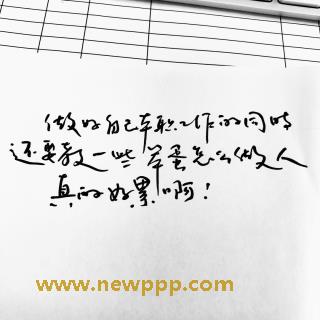 做好自己本职工作的同时
还要教一些笨蛋怎么做人
真的好累啊！
www.newppp.com